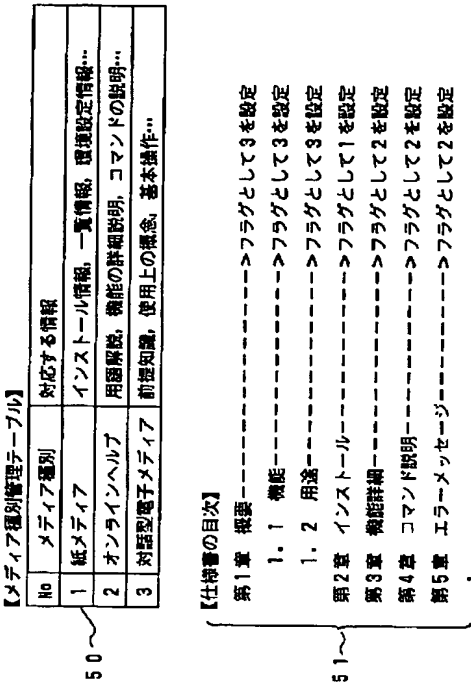 【メディア種別管理テーブル】
No メディア種別 対応する情報
1 紙メディア インストール情報, 一覧情報, 環境設定情報…
2 オンラインヘルプ 用語解説, 機能の詳細説明, コマンドの説明…
3 対話型電子メディア 前提知識, 使用上の概念, 基本操作…
50
【仕様書の目次】
第1章 概要-------------->フラグとして3を設定
1. 1 機能-------------->フラグとして3を設定
1. 2 用途-------------->フラグとして3を設定
第2章 インストール-------------->フラグとして1を設定
第3章 機能詳細-------------->フラグとして2を設定
第4章 コマンド説明-------------->フラグとして2を設定
第5章 エラーメッセージ-------------->フラグとして2を設定
51